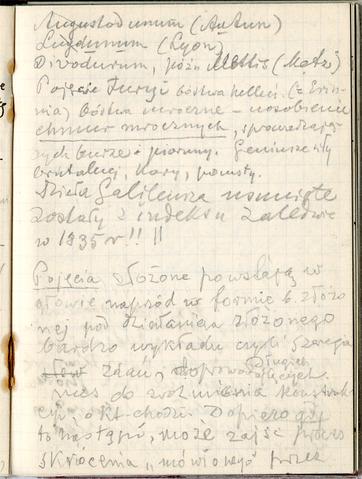 Augustodunum (Autun)
Lugdunum (Lyon)
Divodurum, późn. Mettis (Metz)
Pojęcie Furyj bóstwa hellen. (z Erin-
nia) bóstwa mroczne - uosobienie
chmur mrocznych, sprowadzają-
cych burze i pioruny. Geniusze siły
brutalnej, kary, pomsty.
Dzieła Galileusza usunięte
zostały z indeksu zaledwie
w 1835 r!! !!
Pojęcia złożone powstają w
głowie naprzód w formie b. złożo
nej pod działaniem złożonego
bardzo wykładu czyli szeregu
zdań, długich
doprowadzających
nas do zrozumienia
o kt. chodzi. Dopiero gdy
to nastąpi, może zajść proces
skrócenia „mówionego" przez